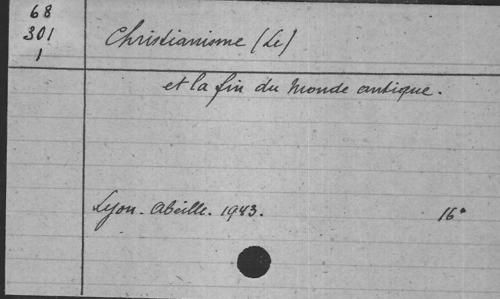 68
301
1
Christianisme (Le)
et la fin du Monde antique.
Lyon. Abeille. 1943. 16°